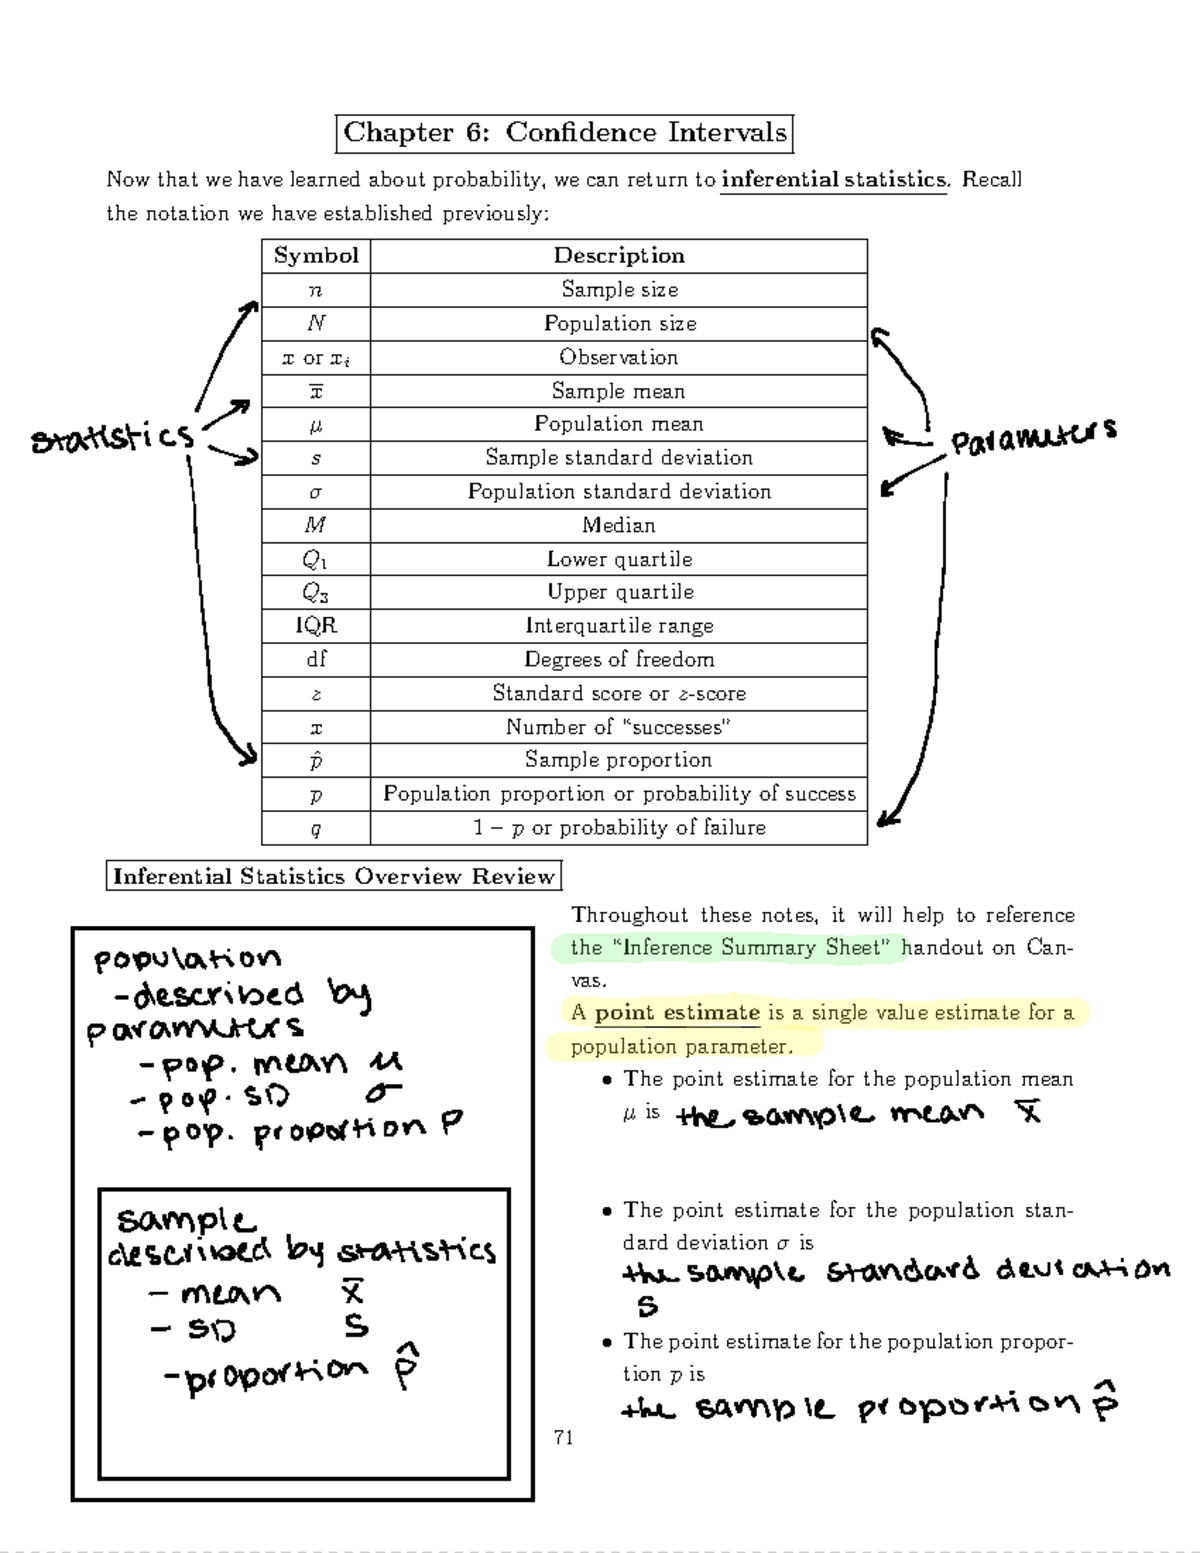 Chapter 6: Confidence Intervals
Now that we have learned about probability, we can return to inferential statistics. Recall
the notation we have established previously:
Symbol Description
n Sample size
N Population size
x or xᵢ Observation
x̅ Sample mean
μ Population mean
s Sample standard deviation
σ Population standard deviation
M Median
Q₁ Lower quartile
Q₃ Upper quartile
IQR Interquartile range
df Degrees of freedom
z Standard score or z-score
x Number of “successes”
p̂ Sample proportion
p Population proportion or probability of success
q 1 − p or probability of failure
statistics
Parameters
Inferential Statistics Overview Review
population
-described by
parameters
-pop. mean μ
-pop. SD σ
-pop. proportion P
sample
described by statistics
- mean x̅
- SD S
-proportion p̂
Throughout these notes, it will help to reference
the “Inference Summary Sheet” handout on Can-
vas.
A point estimate is a single value estimate for a
population parameter.
• The point estimate for the population mean
μ is the sample mean x̅
• The point estimate for the population stan-
dard deviation σ is
the sample standard deviation
S
• The point estimate for the population propor-
tion p is
the sample proportion p̂
71